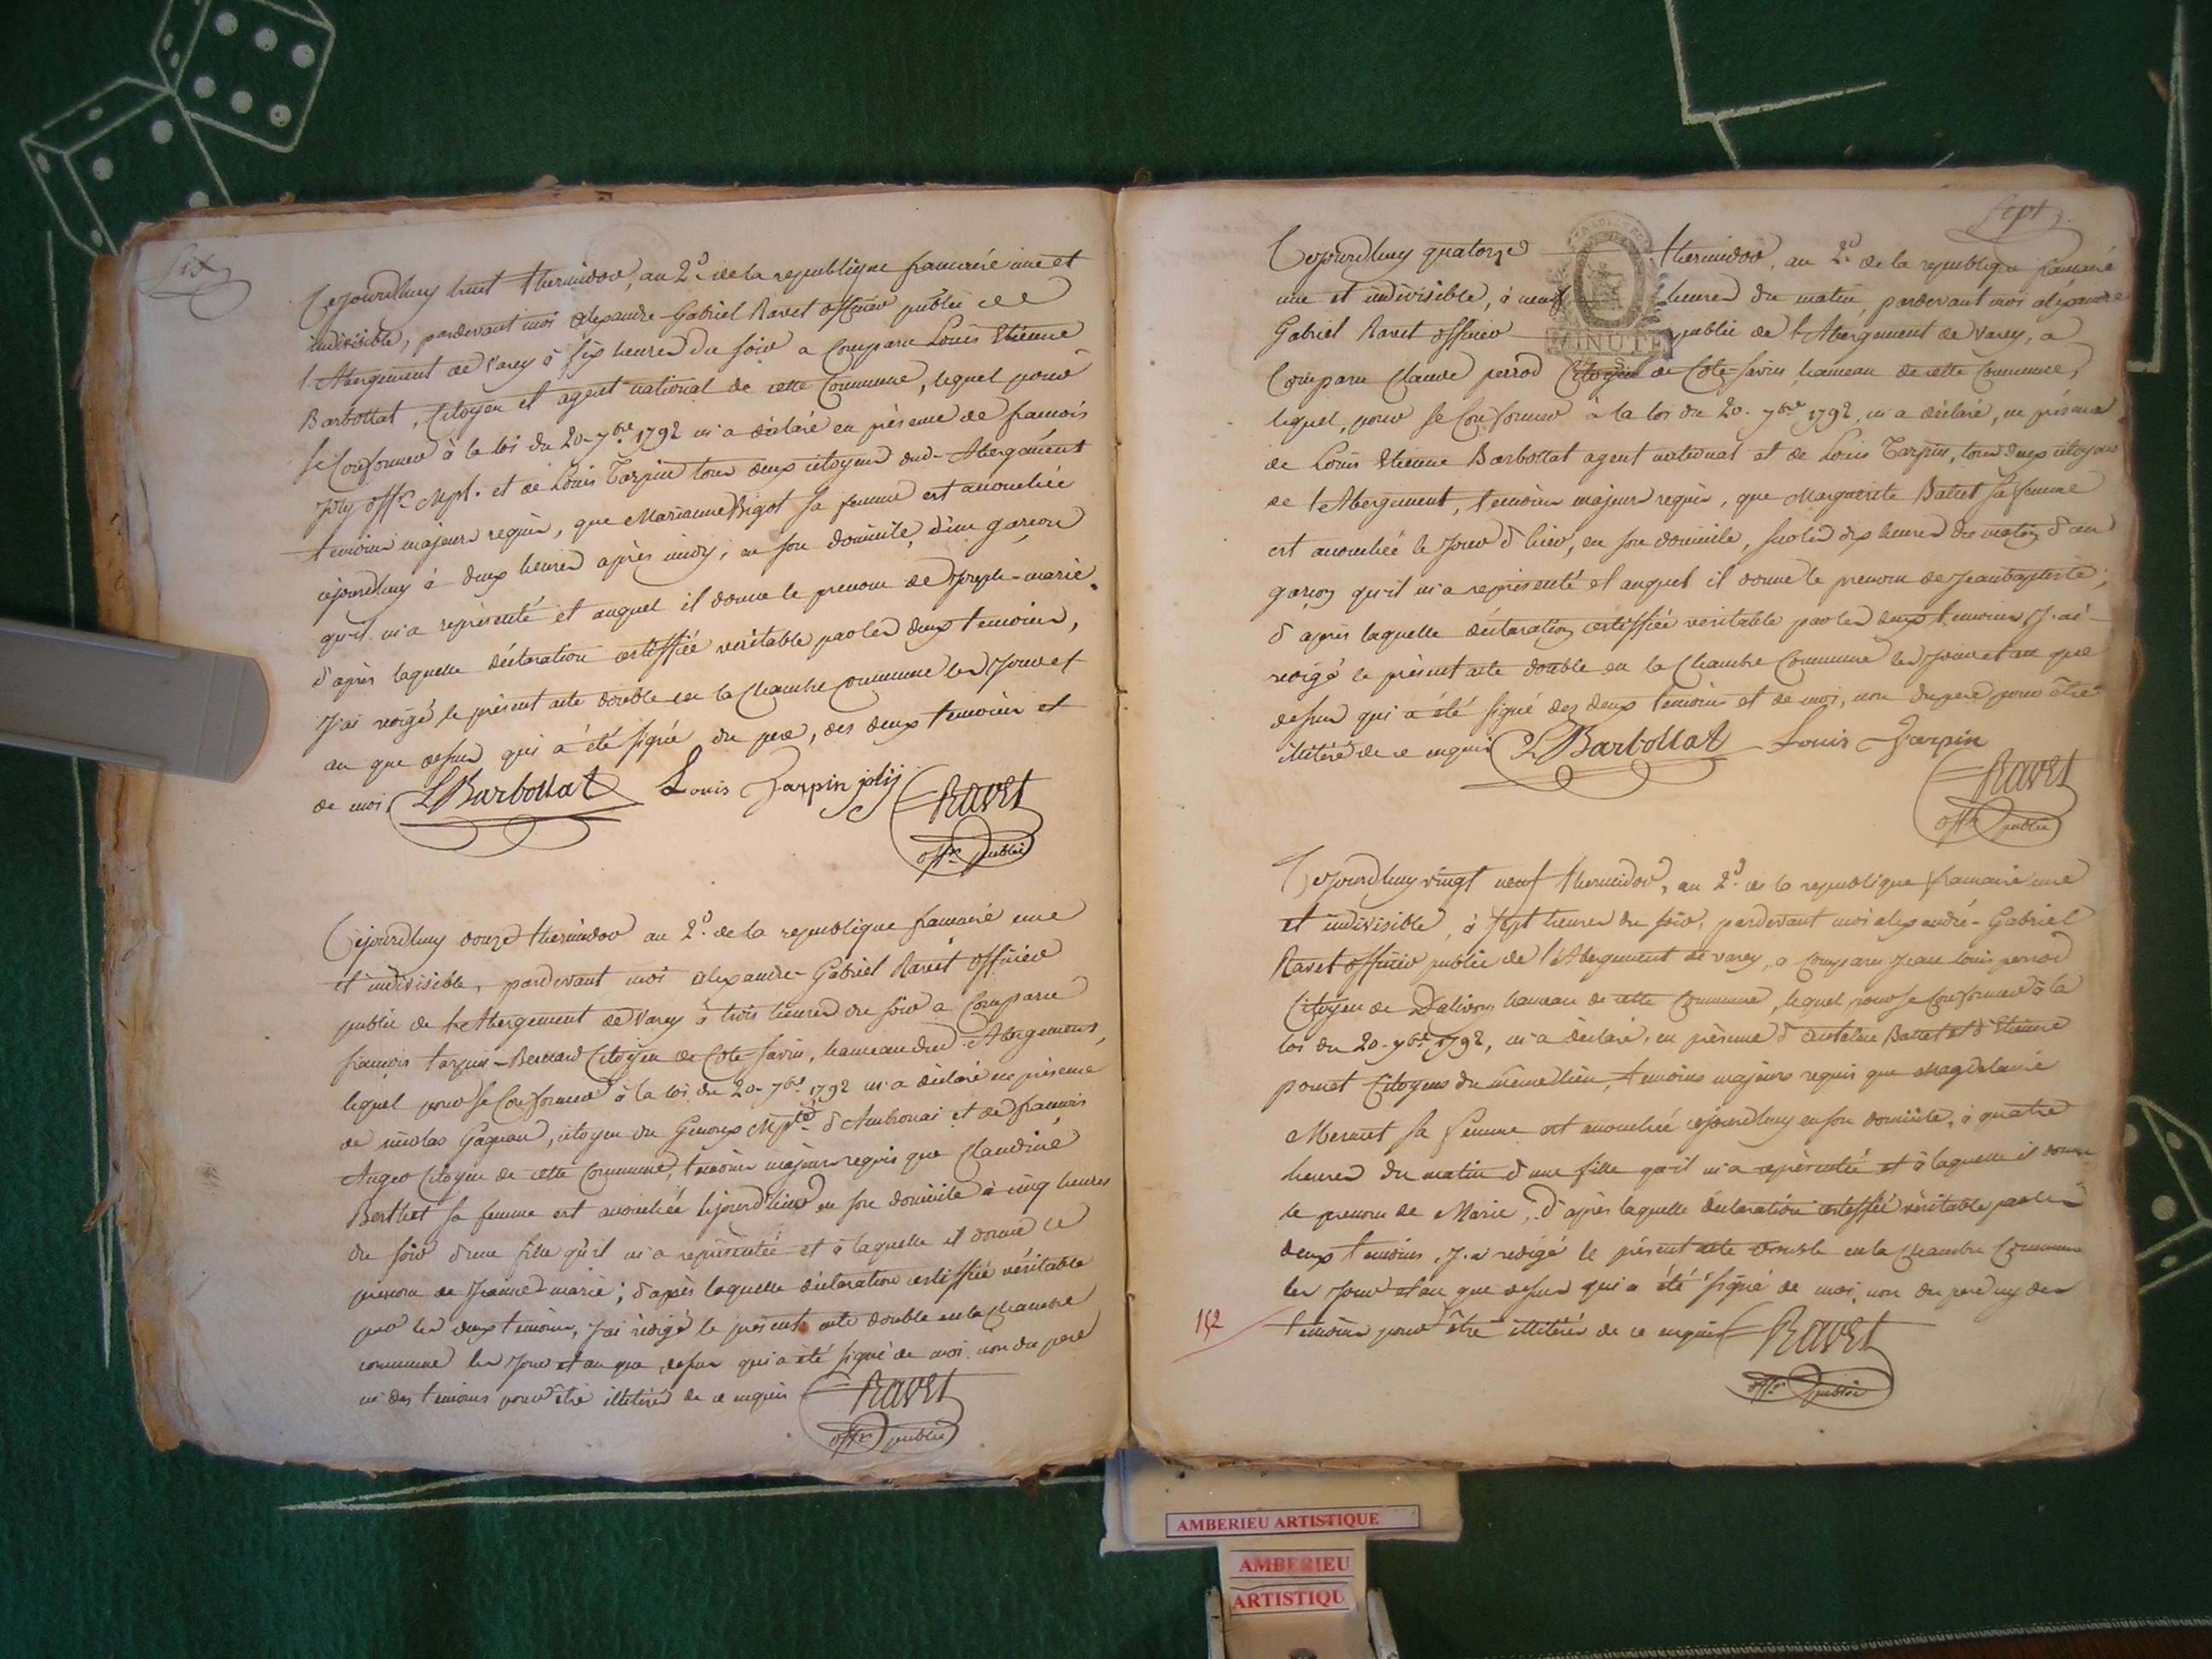 six
Cejourdhuy huit thermidor, an 2.d de la republique francaise une et
indivisible, pardevant moi alexandre Gabriel Ravet officier public de
l'Abergement de Varey à six heures du soir a comparu Louis Etienne
Barbollat, citoyen et agent national de cette commune, lequel pour
se conformer à la loi du 20. 7bre 1792 m'a déclaré en présence de francois
Joly offr. Mpl. et de Louis Tarpin tous deux citoyens dud. Abergement
temoins majeurs requis, que Marianne Bigot sa femme est accouchée
cejourdhuy à deux heures après midy, en son domicile, d'un garcon
qu'il m'a représenté et auquel il donne le prenom de Joseph-marie.
d'après laquelle déclaration certiffiée veritable par les deux temoins,
J'ai redigé le présent acte double en la chambre commune les jour et
an que dessus qui a été signé du pere, des deux temoins et
de moi. LBarbollat Louis Tarpin jolij Ravet
offr. public
Cejourdhuy douze thermidor an 2.d de la republique francaise une
et indivisible, pardevant moi alexandre Gabriel Ravet officier
public de l'Abergement de Varey à trois heures du soir a comparu
francois tarpin-Bernard citoyen de Cote-savin, hameau dud. Abergement,
lequel pour se conformer à la loi du 20. 7bre 1792 m'a déclaré en présence
de nicolas Gagneau, citoyen du Genoux Mplté d'Ambronai et de francois
Auger citoyen de cette commune, temoins majeurs requis que Claudine
Berthet sa femme est accouchée le jourd'hier en son domicile à cinq heures
du soir d'une fille qu'il m'a représentée et à laquelle il donne le
prenom de Jeanne marie; d'après laquelle déclaration certiffiée véritable
par les deux temoins, J'ai redigé le présent acte double en la chambre
commune les jour et an que dessus qui a été signé de moi non du pere
ni des temoins pour être illitérés de ce enquis Ravet
offr. public
sept
Cejourdhuy quatorze thermidor, an 2.d de la republique francaise
une et indivisible, à neuf heures du matin, pardevant moi alexandre
Gabriel Ravet officier public de l'Abergement de Varey, a
MINUTE
comparu Claude perrod Citoyen de Cote-savin hameau de cette commune,
lequel, pour se conformer à la loi du 20. 7bre 1792, m'a déclaré, en présence
de Louis Etienne Barbollat agent national et de Louis Tarpin, tous deux citoyens
de l'Abergement, temoins majeurs requis, que Marguerite Batet sa femme
est accouchée le jour d'hier, en son domicile, sur les dix heures du matin d'un
garcon qu'il m'a représenté et auquel il donne le prenom de Jean baptiste;
d'après laquelle déclaration certiffiée veritable par les deux temoins, J'ai
redigé le présent acte double en la chambre commune les jour et an que
dessus qui a été signé des deux temoins et de moi, non du pere pour être
illitéré de ce enquis LBarbollat Louis Tarpin
Ravet
offr. public
Cejourdhuy vingt neuf thermidor, an 2.d de la republique francaise une
et indivisible, à sept heures du soir, pardevant moi alexandre-Gabriel
Ravet officier public de l'Abergement de varey, a comparu Jean Louis perrod
Citoyen de Dalivoy hameau de cette commune, lequel pour se conformer à la
loi du 20. 7bre 1792, m'a déclaré, en présence d'antelme Battet et d'Etienne
pomet Citoyens du même lieu, temoins majeurs requis que Magdelaine
Mermet sa femme est accouchée cejourdhuy en son domicile, à quatre
heures du matin d'une fille qu'il m'a représentée et à laquelle il donne
le prenom de Marie, d'après laquelle déclaration certiffiée véritable par les
deux temoins, J'ai redigé le présent acte double en la chambre commune
les jour et an que dessus qui a été signé de moi non du pere ny des
152
temoins pour être illitérés de ce enquis Ravet
offr. public
AMBERIEU ARTISTIQUE
AMBERIEU
ARTISTIQU